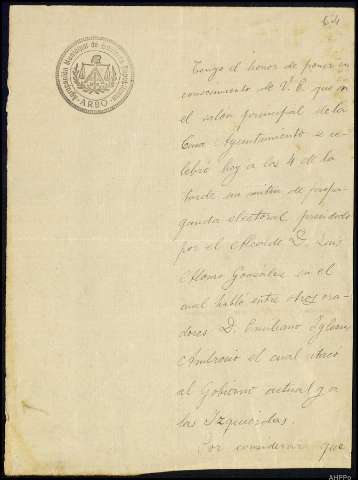 64
Agrupación Municipal de Izquierda
ARBO
Tengo el honor de poner en
conocimiento de V. E. que en
el salon principal de la
Casa Ayuntamiento se ce-
lebró hoy a las 4 de la
tarde un mitin de propa-
ganda electoral presidido
por el Alcalde D. Luis
Alonso González en el
cual habló entre otros ora-
dores D. Emiliano Iglesias
Ambrosio el cual atacó
al Gobierno actual y a
las Izquierdas.
Por considerar que
AHPPo